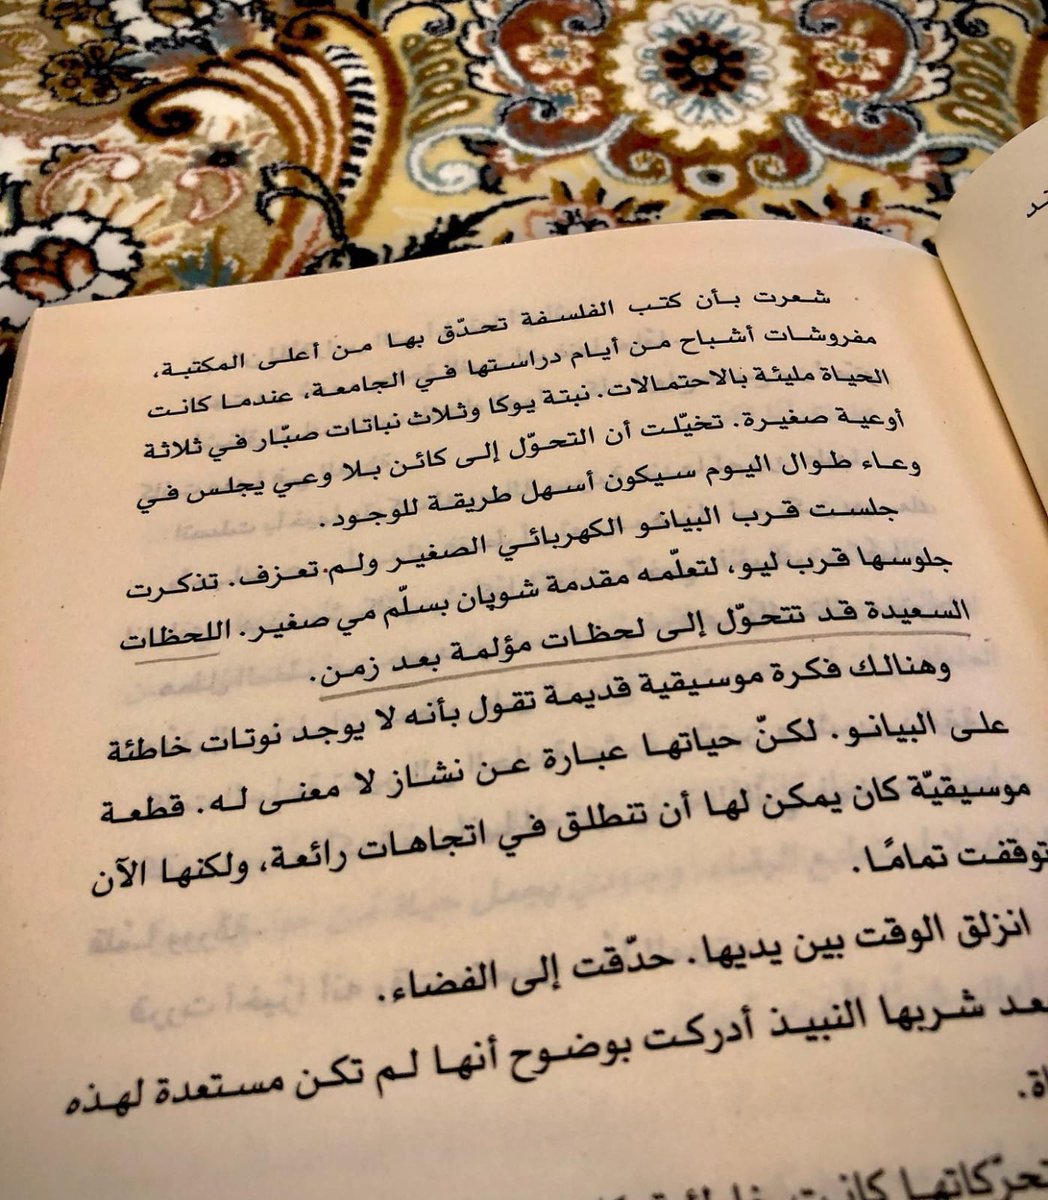 شعرت بأن كتب الفلسفة تحدّق بها من أعلى المكتبة،
مفروشات أشباح من أيام دراستها في الجامعة، عندما كانت
الحياة مليئة بالاحتمالات. نبتة يوكا وثلاث نباتات صبّار في ثلاثة
أوعية صغيرة. تخيّلت أن التحوّل إلى كائن بلا وعي يجلس في
وعاء طوال اليوم سيكون أسهل طريقة للوجود.
جلست قرب البيانو الكهربائي الصغير ولم تعزف. تذكرت
جلوسها قرب ليو، لتعلّمه مقدمة شوپان بسلّم مي صغير. اللحظات
السعيدة قد تتحوّل إلى لحظات مؤلمة بعد زمن.
وهنالك فكرة موسيقية قديمة تقول بأنه لا يوجد نوتات خاطئة
على البيانو. لكنّ حياتها عبارة عن نشاز لا معنى له. قطعة
موسيقيّة كان يمكن لها أن تنطلق في اتجاهات رائعة، ولكنها الآن
توقفت تمامًا.
انزلق الوقت بين يديها. حدّقت إلى الفضاء.
شربها النبيذ أدركت بوضوح أنها لم تكن مستعدة لهذه